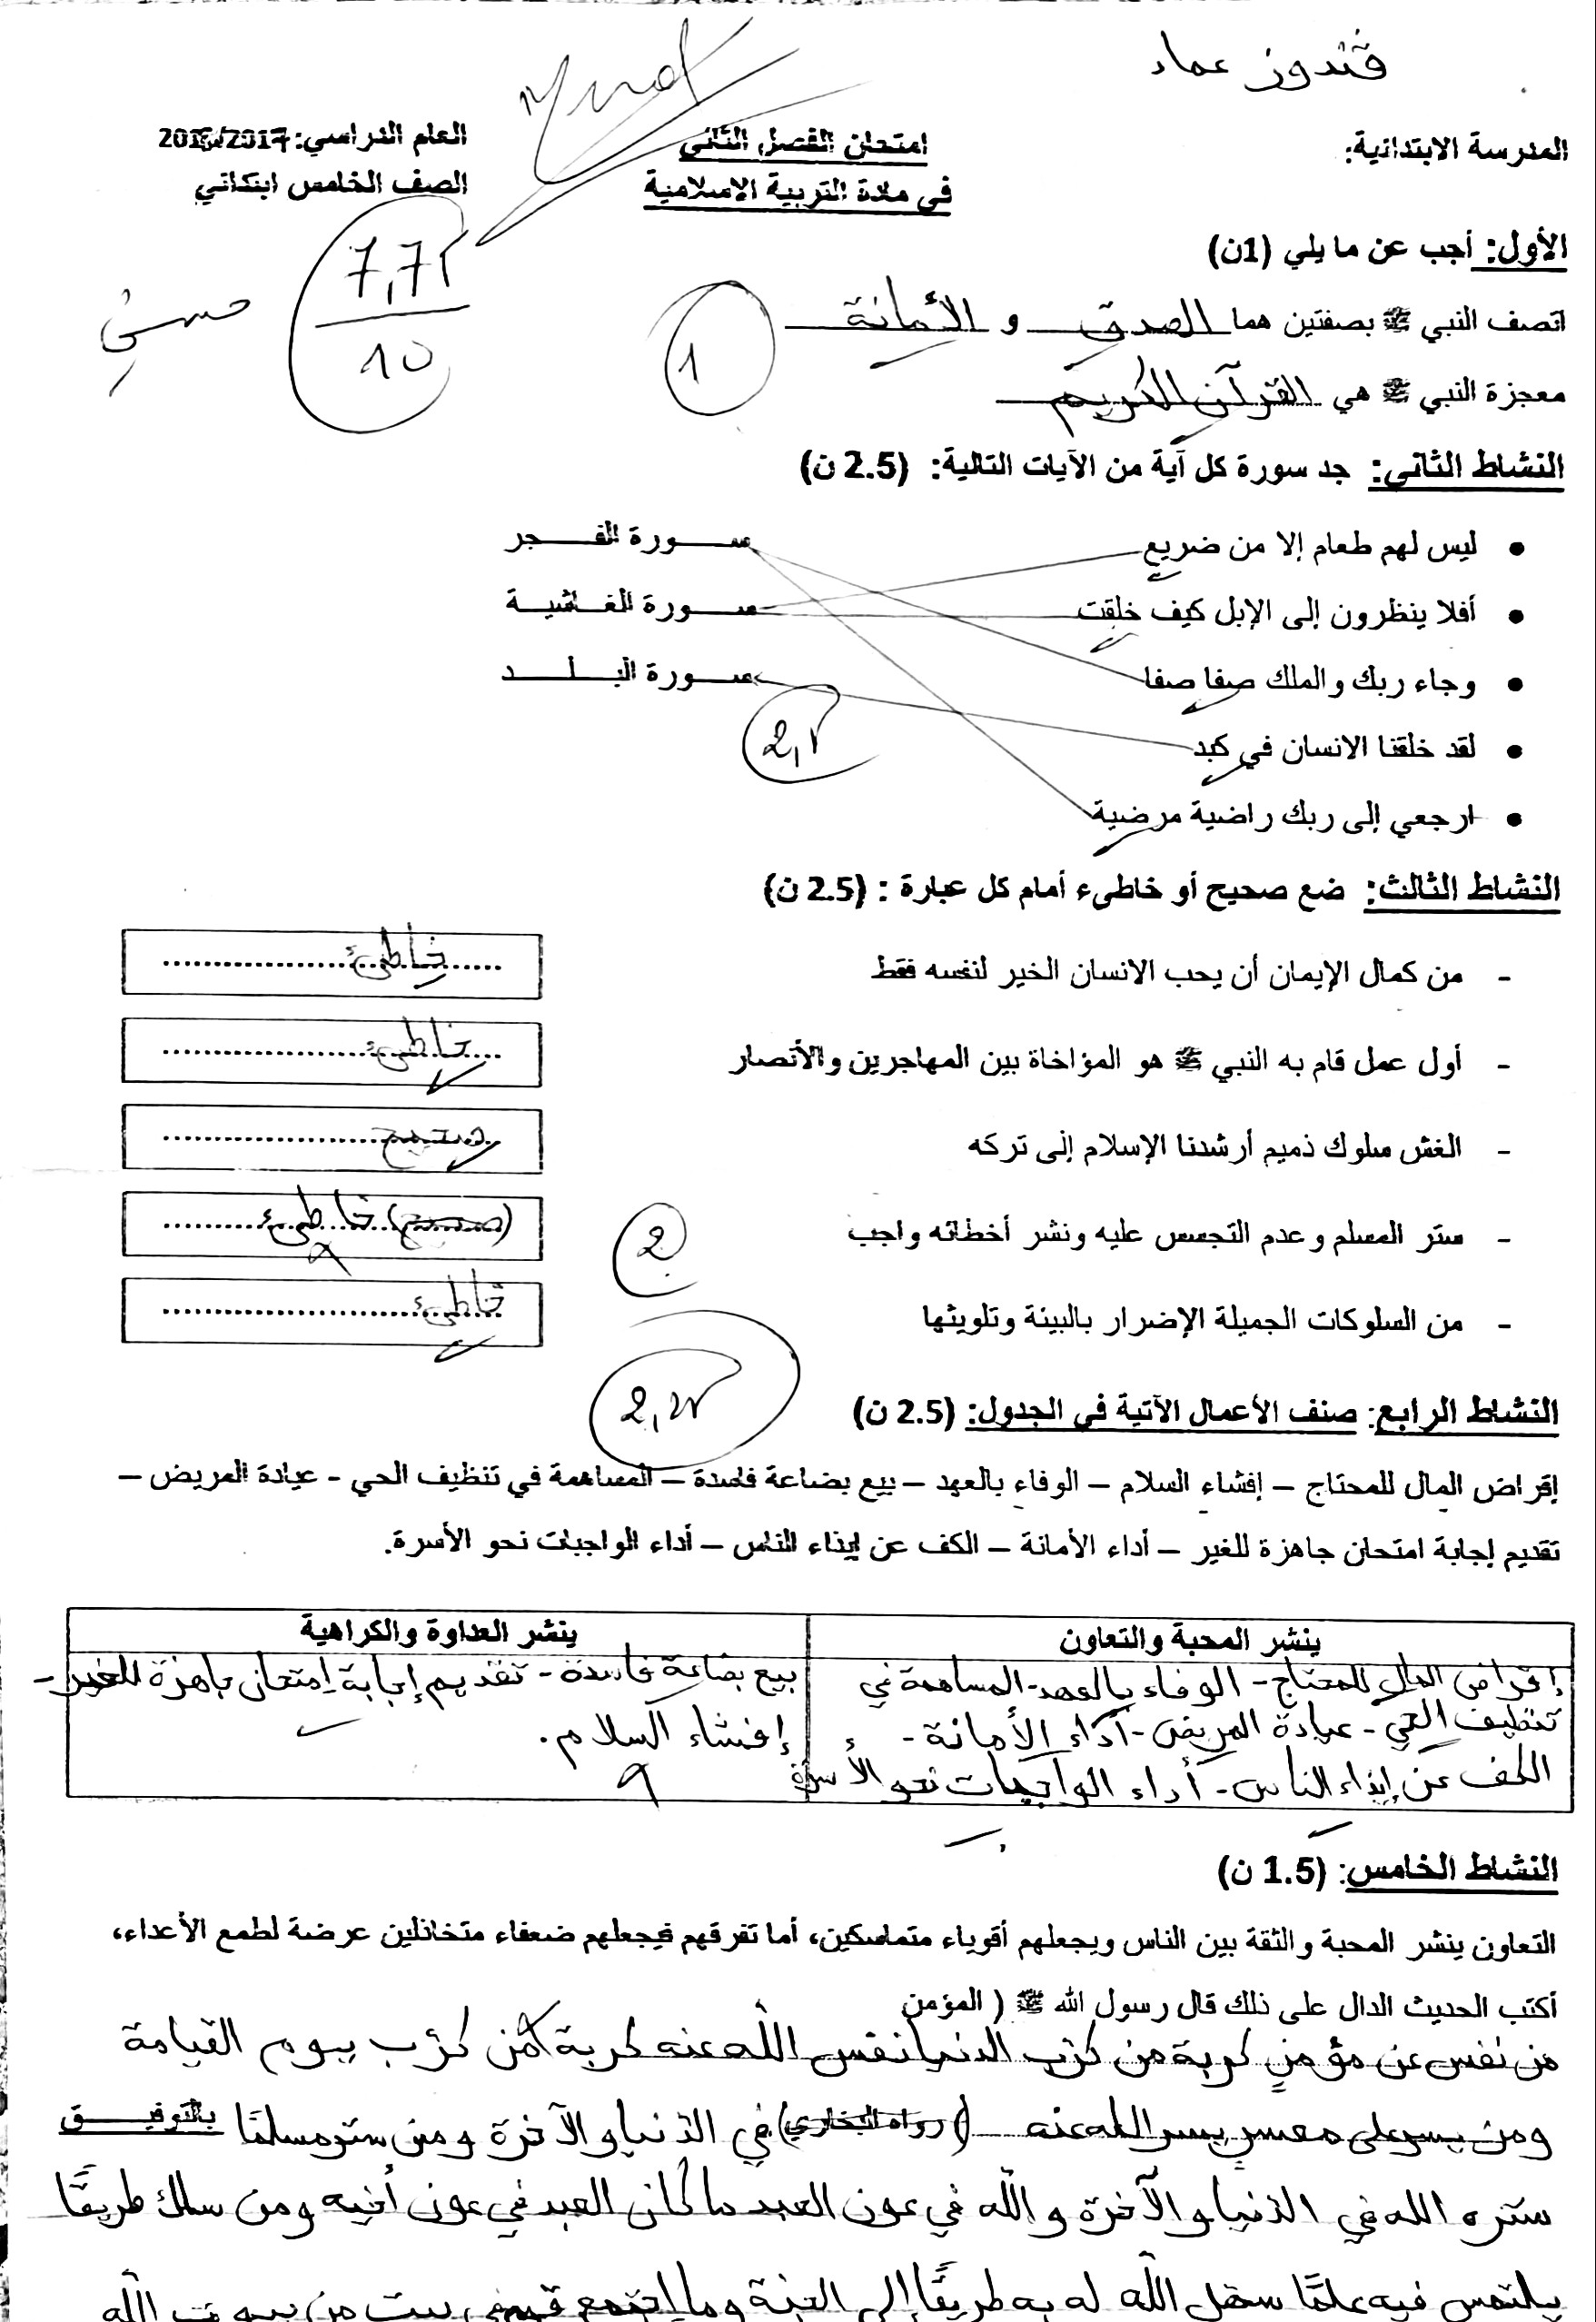 قندوز عماد
المدرسة الابتدائية:
امتحان الفصل الثاني
العام الدراسي: 2016/2017
في مادة التربية الإسلامية
الصف الخامس ابتدائي
7,75
10
الأول: أجب عن ما يلي (1ن)
اتصف النبي ﷺ بصفتين هما الصدق و الأمانة
1
معجزة النبي ﷺ هي القرآن الكريم
النشاط الثاني: جد سورة كل آية من الآيات التالية: (2.5 ن)
• ليس لهم طعام إلا من ضريع سورة الفجر
• أفلا ينظرون إلى الإبل كيف خلقت سورة الغاشية
• وجاء ربك والملك صفا صفا سورة البلد
• لقد خلقنا الانسان في كبد
2,5
• ارجعي إلى ربك راضية مرضية
النشاط الثالث: ضع صحيح أو خاطىء أمام كل عبارة : (2.5 ن)
- من كمال الإيمان أن يحب الانسان الخير لنفسه فقط خاطئ
- أول عمل قام به النبي ﷺ هو المؤاخاة بين المهاجرين والأنصار خاطئ
- الغش سلوك ذميم أرشدنا الإسلام إلى تركه صحيح
- ستر المسلم وعدم التجسس عليه ونشر أخطائه واجب (صحيح) خاطئ
2
- من السلوكات الجميلة الإضرار بالبيئة وتلويثها خاطئ
النشاط الرابع: صنف الأعمال الآتية في الجدول: (2.5 ن)
2,25
إقراض المال للمحتاج – إفشاء السلام – الوفاء بالعهد – بيع بضاعة فاسدة – المساهمة في تنظيف الحي - عيادة المريض –
تقديم إجابة امتحان جاهزة للغير – أداء الأمانة – الكف عن إيذاء الناس – أداء الواجبات نحو الأسرة.
ينشر المحبة والتعاون
ينشر العداوة والكراهية
إقراض المال للمحتاج - الوفاء بالعهد - المساهمة في
تنظيف الحي - عيادة المريض - أداء الأمانة -
الكف عن إيذاء الناس - أداء الواجبات نحو الأسرة
بيع بضاعة فاسدة - تقديم إجابة إمتحان جاهزة للغير -
إفشاء السلام.
النشاط الخامس: (1.5 ن)
التعاون ينشر المحبة والثقة بين الناس ويجعلهم أقوياء متماسكين، أما تفرقهم فيجعلهم ضعفاء متخاذلين عرضة لطمع الأعداء،
أكتب الحديث الدال على ذلك قال رسول الله ﷺ ( المؤمن
من نفس عن مؤمنٍ كربة من كرب الدنيا نفس الله عنه كربة من كرب يوم القيامة
ومن يسر على معسرٍ يسر الله عنه (رواه البخاري) في الدنيا والآخرة ومن ستر مسلمًا بالتوفيق
ستره الله في الدنيا والآخرة والله في عون العبد ما كان العبد في عون أخيه ومن سلك طريقًا
يلتمس فيه علمًا سهل الله له به طريقًا إلى الجنة وما اجتمع قوم في بيت من بيوت الله